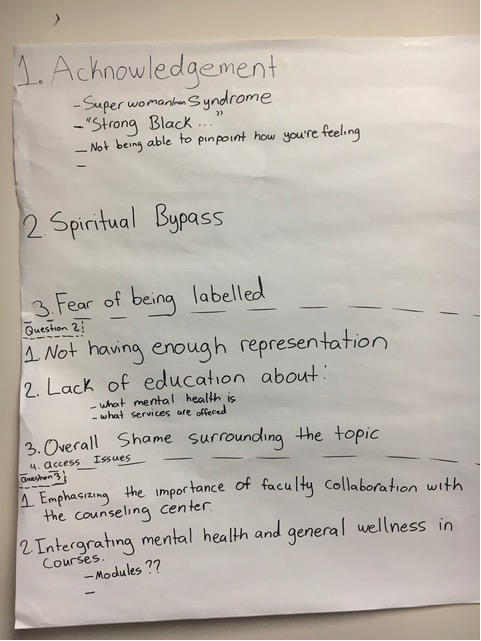 1. Acknowledgement
- Superwoman/man Syndrome
- "Strong Black..."
- Not being able to pinpoint how you're feeling
-
2. Spiritual Bypass
3. Fear of being labelled
Question 2:
1. Not having enough representation
2. Lack of education about:
- what mental health is
- what services are offered
3. Overall Shame surrounding the topic
4. access Issues
Question 3:
1. Emphasizing the importance of faculty collaboration with
the counseling center.
2. Intergrating mental health and general wellness in
Courses.
- Modules ??
-